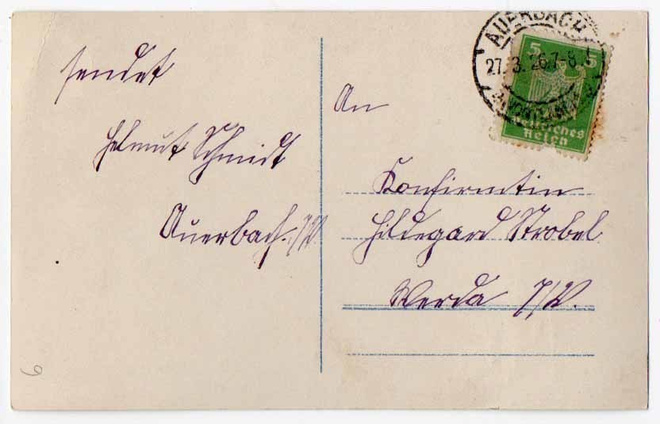 sendet
Helmut Schmidt
Auerbach. i/V.
An
Konfirmtin
Hildegard Strobel
Werda i/V.
AUERBACH
27.3.26.7-8
5 5
Deutsches
Reich
9